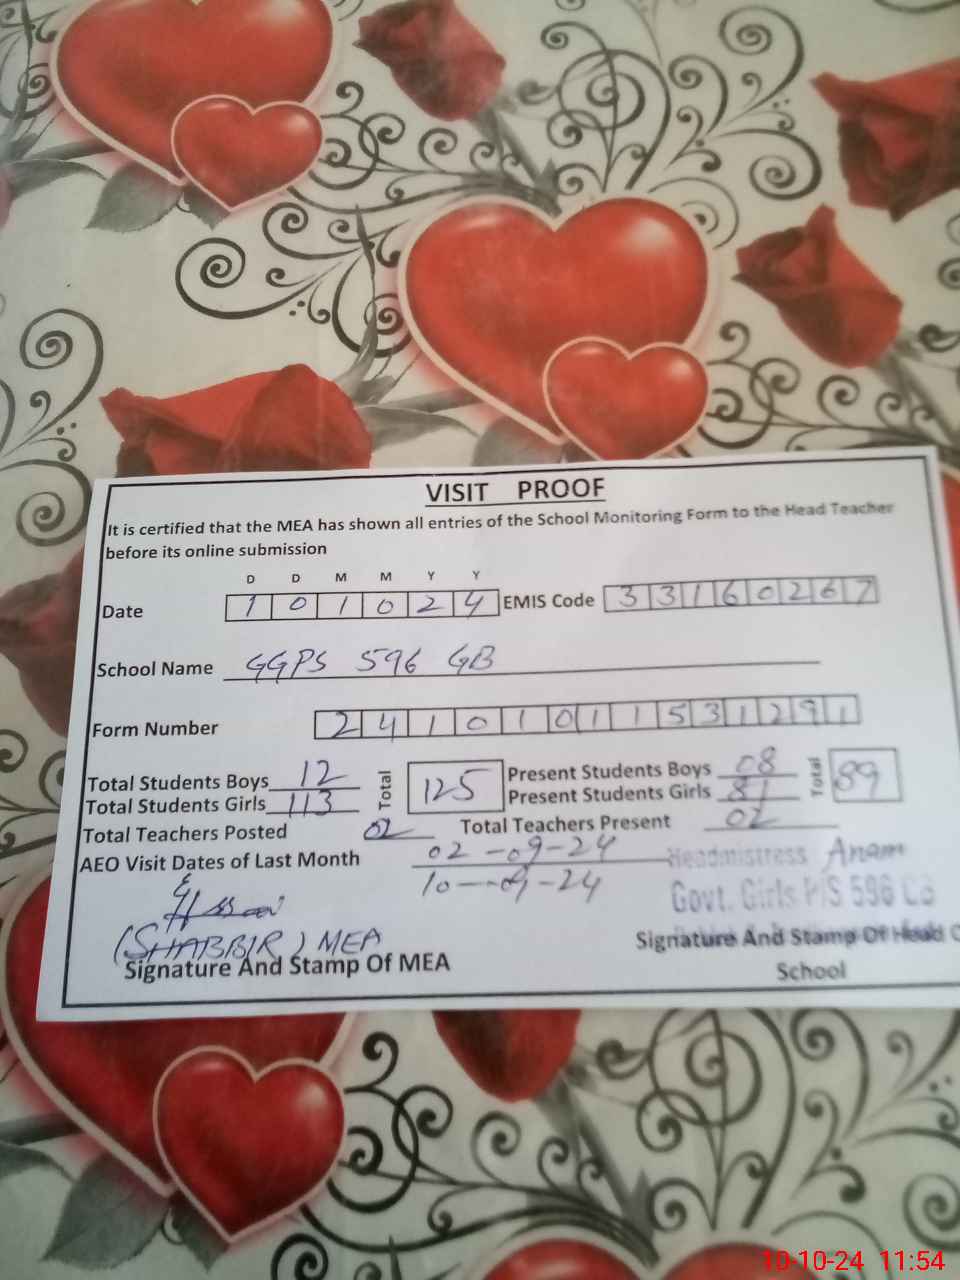 VISIT PROOF
It is certified that the MEA has shown all entries of the School Monitoring Form to the Head Teacher
before its online submission
D D M M Y Y
Date 1 0 1 0 2 4 EMIS Code 3 3 1 6 0 2 6 7
School Name GGPS 596 GB
Form Number 2 4 1 0 1 0 1 1 5 3 1 2 9 1
Total Students Boys 12 Total 125 Present Students Boys 08 Total 89
Total Students Girls 113 Present Students Girls 81
Total Teachers Posted 02 Total Teachers Present 02
AEO Visit Dates of Last Month 02-09-24 Headmistress Anam
10-09-24 Govt. Girls P/S 596
(SHABBIR) MEA
Signature And Stamp Of MEA Signature And Stamp Of Head
School
10-10-24 11:54